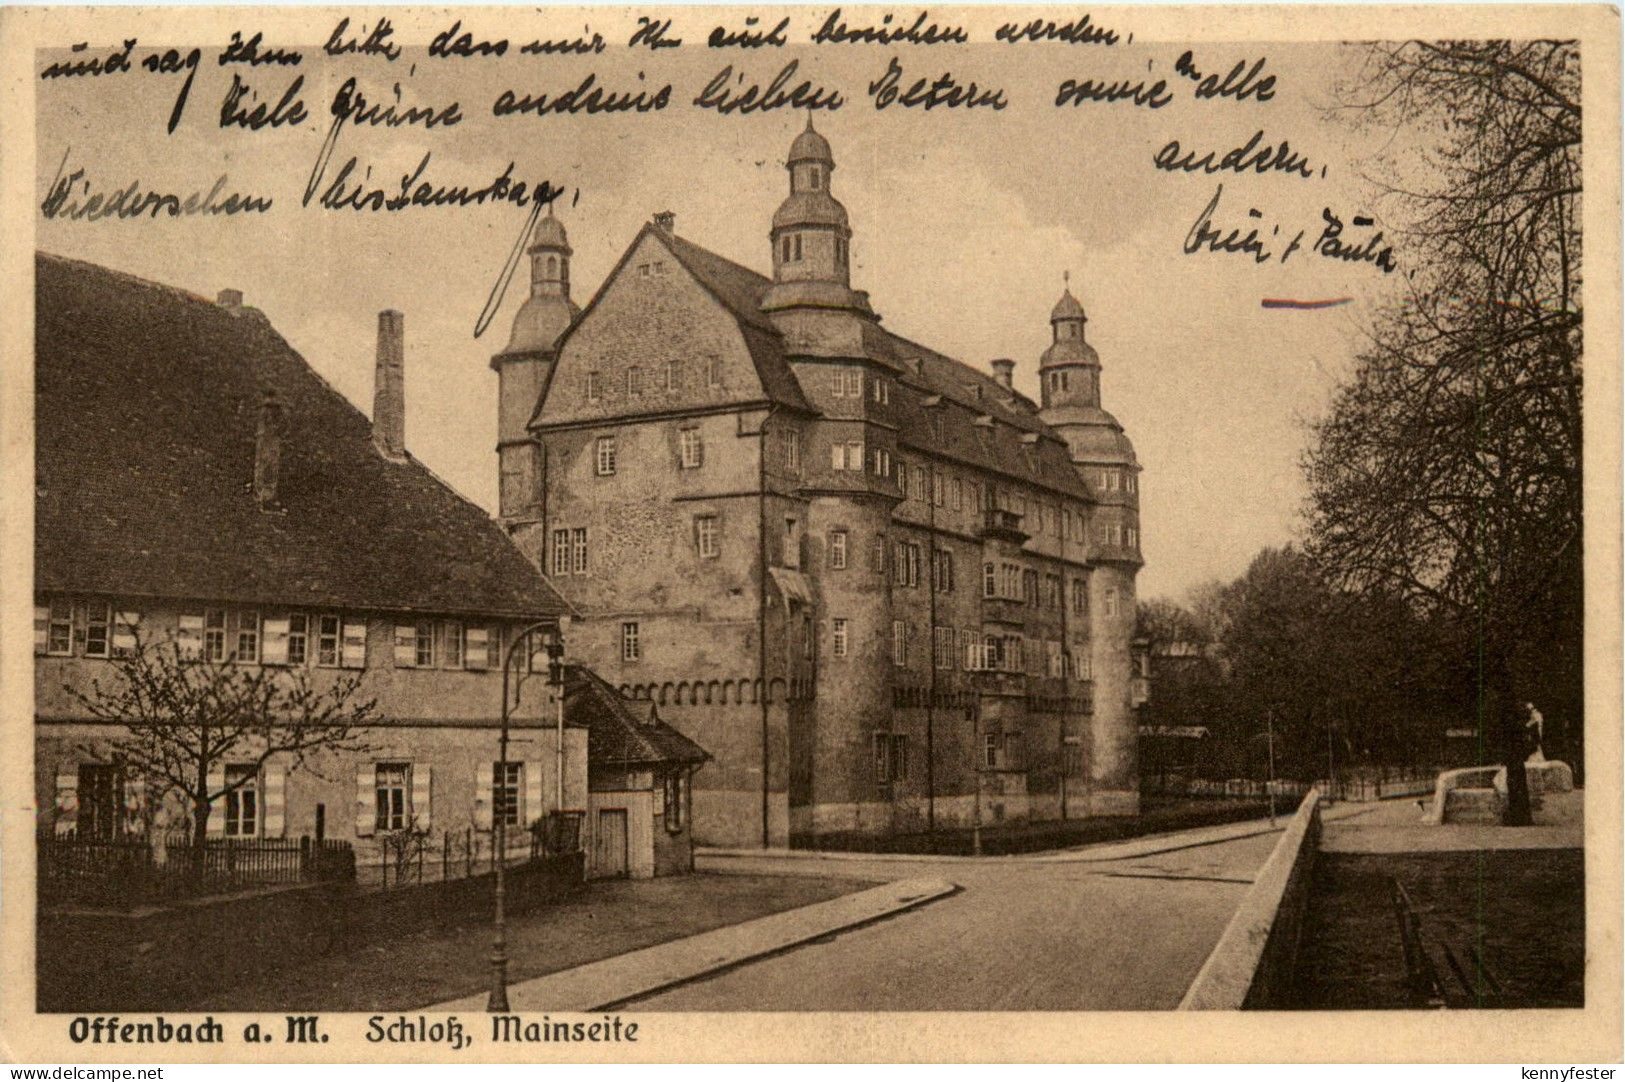 und sag Ihm bitte, dass wir Ihn auch besuchen werden.
Viele Grüsse an deine lieben Eltern sowie an alle
andern.
Wiedersehen bis Samstag,
+ Paula.
Offenbach a. M. Schloß, Mainseite
www.delcampe.net
kennyfester